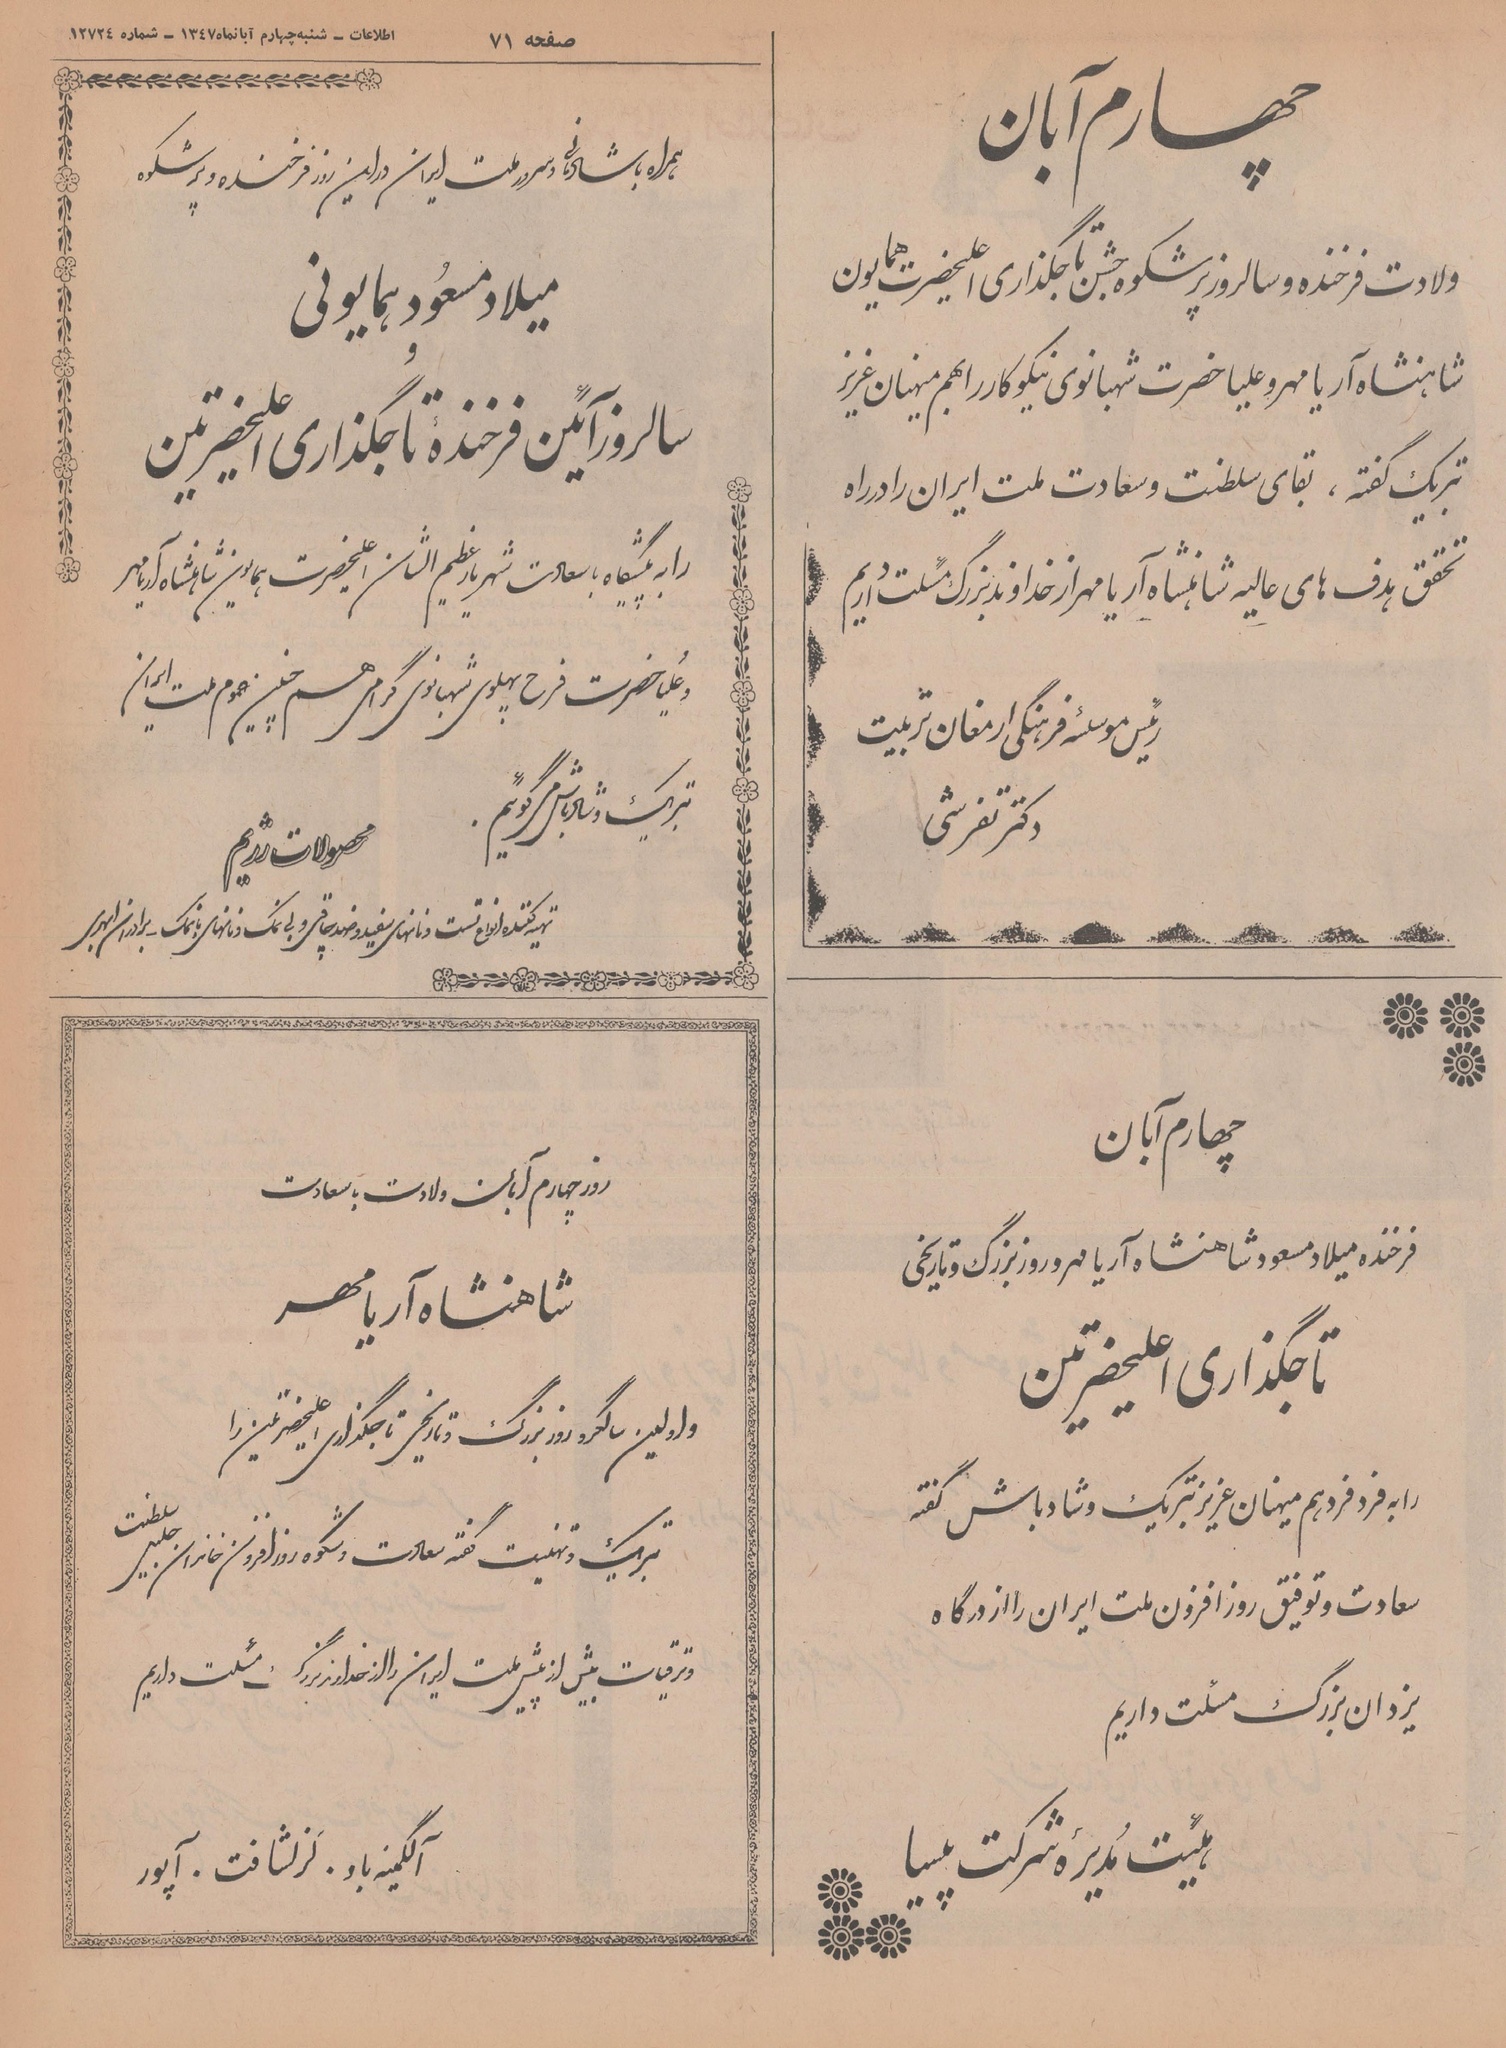 اطلاعات ـ شنبه چهارم آبانماه ۱۳۴۷ ـ شماره ۱۲۷۲۴
صفحه ۷۱
چهارم آبان
ولادت فرخنده و سالروز پرشکوه جشن تاجگذاری اعلیحضرت همایون
شاهنشاه آریامهر و علیاحضرت شهبانوی نیکوکار را بهم میهنان عزیز
تبریک گفته ، بقای سلطنت و سعادت ملت ایران را در راه
تحقق هدف های عالیه شاهنشاه آریامهر از خداوند بزرگ مسئلت داریم
رئیس موسسهٔ فرهنگی ارمغان تربیت
دکتر تفرشی
همراه با شادمانی و سرور ملت ایران در این روز فرخنده و پرشکوه
میلاد مسعُود همایونی
و
سالروز آئین فرخندهٔ تاجگذاری اعلیحضرتین
را به پیشگاه با سعادت شهریار عظیم الشان اعلیحضرت همایون شاهنشاه آریامهر
و عُلیاحضرت فرح پهلوی شهبانوی گرامی هم چنین عموم ملت ایران
تبریک و شادباش می گوئیم .
محصولات رژیم
تهیه کننده انواع تست و نانهای سفید و ضد چاقی و بی نمک و نانهای با نمک ـ برادران
چهارم آبان
فرخنده میلاد مسعود شاهنشاه آریامهر و روز بزرگ و تاریخی
تاجگذاری اعلیحضرتین
را به فرد فرد هم میهنان عزیز تبریک و شادباش گفته
سعادت و توفیق روزافزون ملت ایران را از درگاه
یزدان بزرگ مسئلت داریم
هیئت مُدیرهٔ شرکت پیسپا
روز چهارم آبان ولادت با سعادت
شاهنشاه آریامهر
و اولین سالگرد روز بزرگ و تاریخی تاجگذاری اعلیحضرتین را
تبریک و تهنیت گفته سعادت و شکوه روزافزون خاندان جلیل سلطنت
و ترقیات بیش از پیش ملت ایران را از خداوند بزرگ مسئلت داریم
آبگینه . لزلشافت . آپور